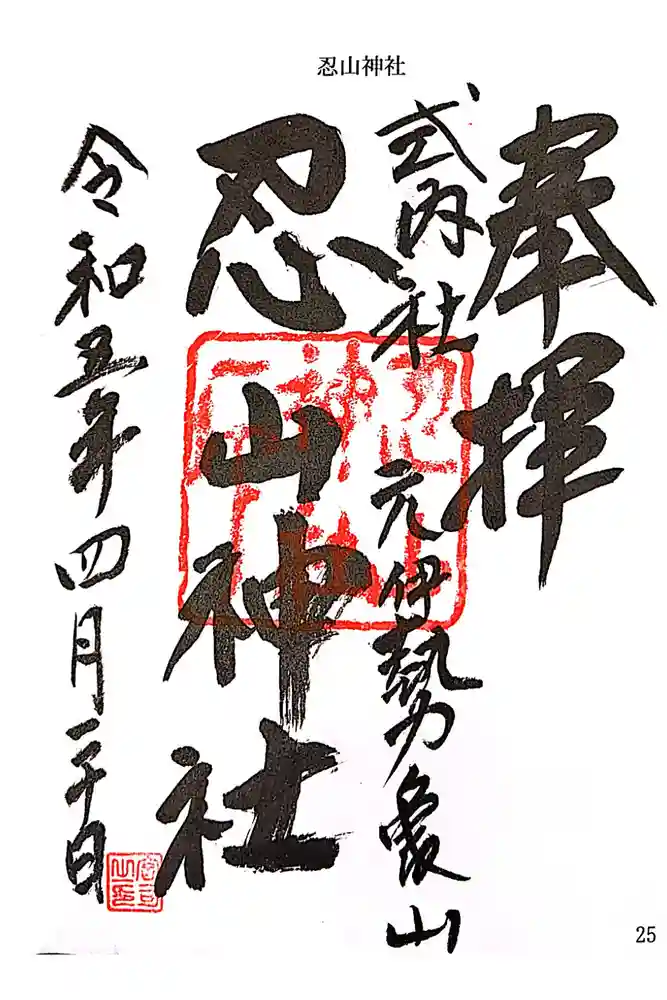 忍山神社
奉拝
式内社 元伊勢 象山
忍山神社
令和五年四月二十日
25